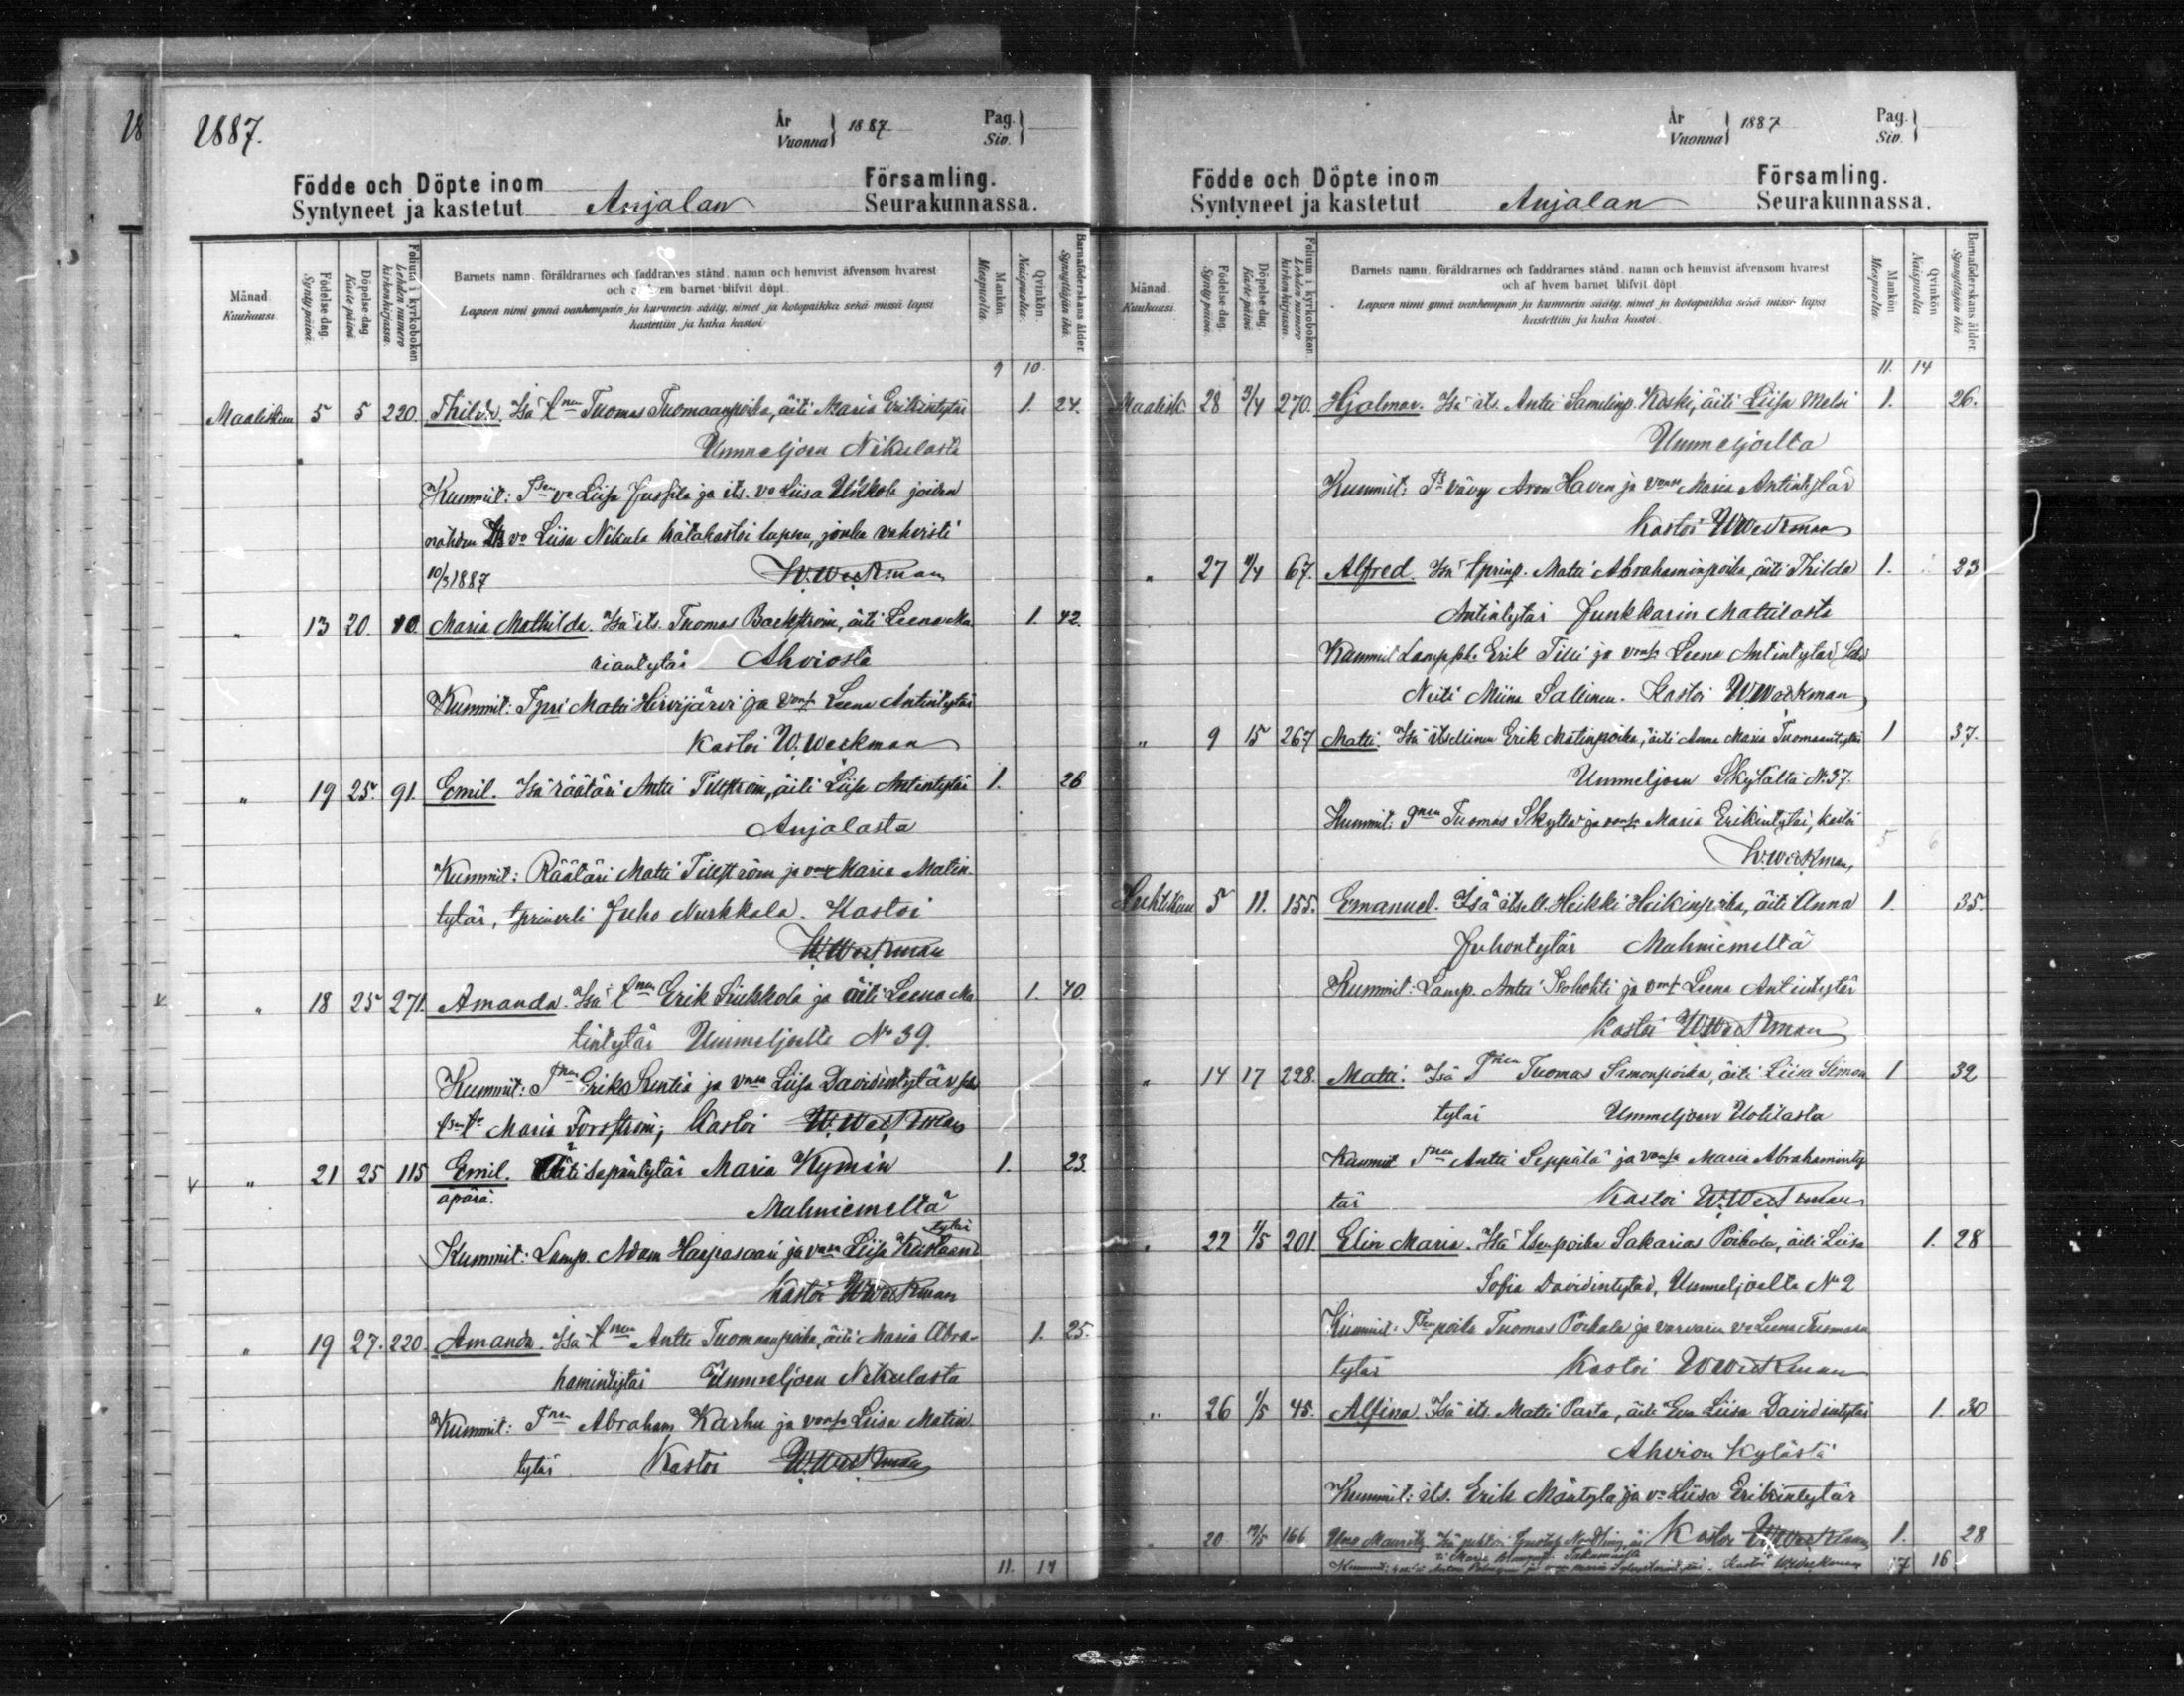 18
1887.
År
Vuonna } 1887.
Pag.
Siv. }
Födde och Döpte inom Församling.
Syntyneet ja kastetut Anjalan Seurakunnassa.
Månad. Kuukausi.
Födelse dag. Syntypäivä.
Döpelse dag. Kastepäivä.
Folium i kyrkoboken. Lehden numero kirkonkirjassa.
Barnets namn, föräldrarnes och faddrarnes stånd, namn och hemvist äfvensom hvarest
och af hvem barnet blifvit döpt.
Lapsen nimi ynnä vanhempain ja kummein sääty, nimet ja kotopaikka sekä missä lapsi
kastettiin ja kuka kastoi.
Mankön. Miespuolia.
Qvinkön. Naispuolia.
Barnaföderskans ålder. Synnyttäjän ikä.
9 10.
Maaliskuu 5 5 220. Thilda. Isä tnen Tuomas Tuomaanpoika, äiti Maria Erikintytär 1. 24.
Ummeljoen Nikulasta
Kummit: vo Liisa Jussila ja its. vo Liisa Ukkola joiden
nähden vo Liisa Nikula hätäkastoi lapsen, jonka vahvisti
10/3 1887 W. Weckman
" 13 20. 10. Maria Mathilda. Isä its. Tuomas Backström, äiti Leena Ma 1. 42.
riantytär Ahviosta
Kummit: Matti Hirvijärvi ja Leena Antintytär
Kastoi W. Weckman
" 19 25. 91. Emil. Isä räätäri Antti Tillström, äiti Liisa Antintytär 1. 26
Anjalasta
Kummit: Räätäri Matti Tillström ja Maria Matin
tytär, Juho Nurkkala. Kastoi
W. Weckman
" 18 25 271. Amanda. Isä tnen Erik Siukkola ja äiti Leena Ma 1. 40.
tintytär Ummeljoelta No 39.
Kummit: Tnen Erik ja vnsa Liisa Davidintytär sekä
Maria Forsström; Kastoi W. Weckman
" 21 25 115 Emil. Äiti sepäntytär Maria Kymin 1. 23.
äpärä. Mahniemeltä
tytär
Kummit: Lamp. Adam Haapasaari ja vnsa Liisa Kustaan
Kastoi W. Weckman
" 19 27. 220. Amanda. Isä tnen Antti Tuomaanpoika, äiti Maria Abra- 1. 25.
hamintytär Ummeljoen Nikulasta
Kummit: Tnen Abraham Karhu ja vnsa Liisa Matin
tytär Kastoi W. Weckman
11. 14
År
Vuonna } 1887
Pag.
Siv. }
Födde och Döpte inom Församling.
Syntyneet ja kastetut Anjalan Seurakunnassa.
Månad. Kuukausi.
Födelse dag. Syntypäivä.
Döpelse dag. Kastepäivä.
Folium i kyrkoboken. Lehden numero kirkonkirjassa.
Barnets namn, föräldrarnes och faddrarnes stånd, namn och hemvist äfvensom hvarest
och af hvem barnet blifvit döpt.
Lapsen nimi ynnä vanhempain ja kummein sääty, nimet ja kotopaikka sekä missä lapsi
kastettiin ja kuka kastoi.
Mankön. Miespuolia.
Qvinkön. Naispuolia.
Barnaföderskans ålder. Synnyttäjän ikä.
11. 14
Maalisk. 28 3/4 270. Hjalmar. Isä its. Antti Samulinp. Koski, äiti Liisa Melsi 1. 26.
Ummeljoelta
Kummit: vävy Aron Haven ja Maria Antintytär
Kastoi W. Weckman
" 27 67. Alfred. Isä Matti Abrahaminpoika, äiti Thilda 1. 23
Antintytär Junkkarin Mattilasta
Kummit Erik Tilli ja Leena Antintytär,
Neiti Miina Sallinen. Kastoi W. Weckman
" 9 15 267 Matti. Isä itsellinen Erik Matinpoika, äiti Anna Maria Tuomaantytär 1 37.
Ummeljoen Skytältä No. 37.
Kummit: Tnen Tuomas Skyttä ja Maria Erikintytär, kastoi
5 6
W. Weckman,
Huhtikuu 5 11. 155. Emanuel. Isä itsell. Heikki Heikinpoika, äiti Anna 1. 35.
Juhontytär Mahniemeltä
Kummit: Lamp. Antti ja Leena Antintytär
Kastoi W. Weckman
" 14 17 228. Matti. Isä Tnen Tuomas Simonpoika, äiti Liisa Simon 1 32
tytär Ummeljoen Uotilasta
Kummit Tnen Antti Seppälä ja vnsa Maria Abrahaminty
tär Kastoi W. Weckman
" 22 1/5 201. Elin Maria. Isä poika Sakarias Poikola, äiti Liisa 1. 28
Sofia Davidintytär, Ummeljoelta No 2
Kummit: poika Tuomas Poikola ja vo Leena Tuomaan
tytär Kastoi W. Weckman
" 26 1/5 45. Alfina. Isä its. Matti Pasta, äiti Eva Liisa Davidintytär 1. 30
Ahvion kylästä
Kummit: its. Erik Mäntylä ja vo Liisa Erikintytär
Kastoi W. Weckman
" 20 166 Uno Mauritz. Isä 1. 28
Kummit: Kastoi W. Weckman
17 16